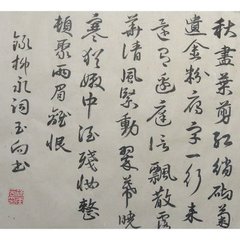 秋盡葉剪紅綃砌菊
遺金粉雁字一行来
還有邊庭信飄散露
華清風緊動翠幕曉
寒猶嫩中酒殘妝整
頓聚兩眉離恨
錄柳永詞玉向書